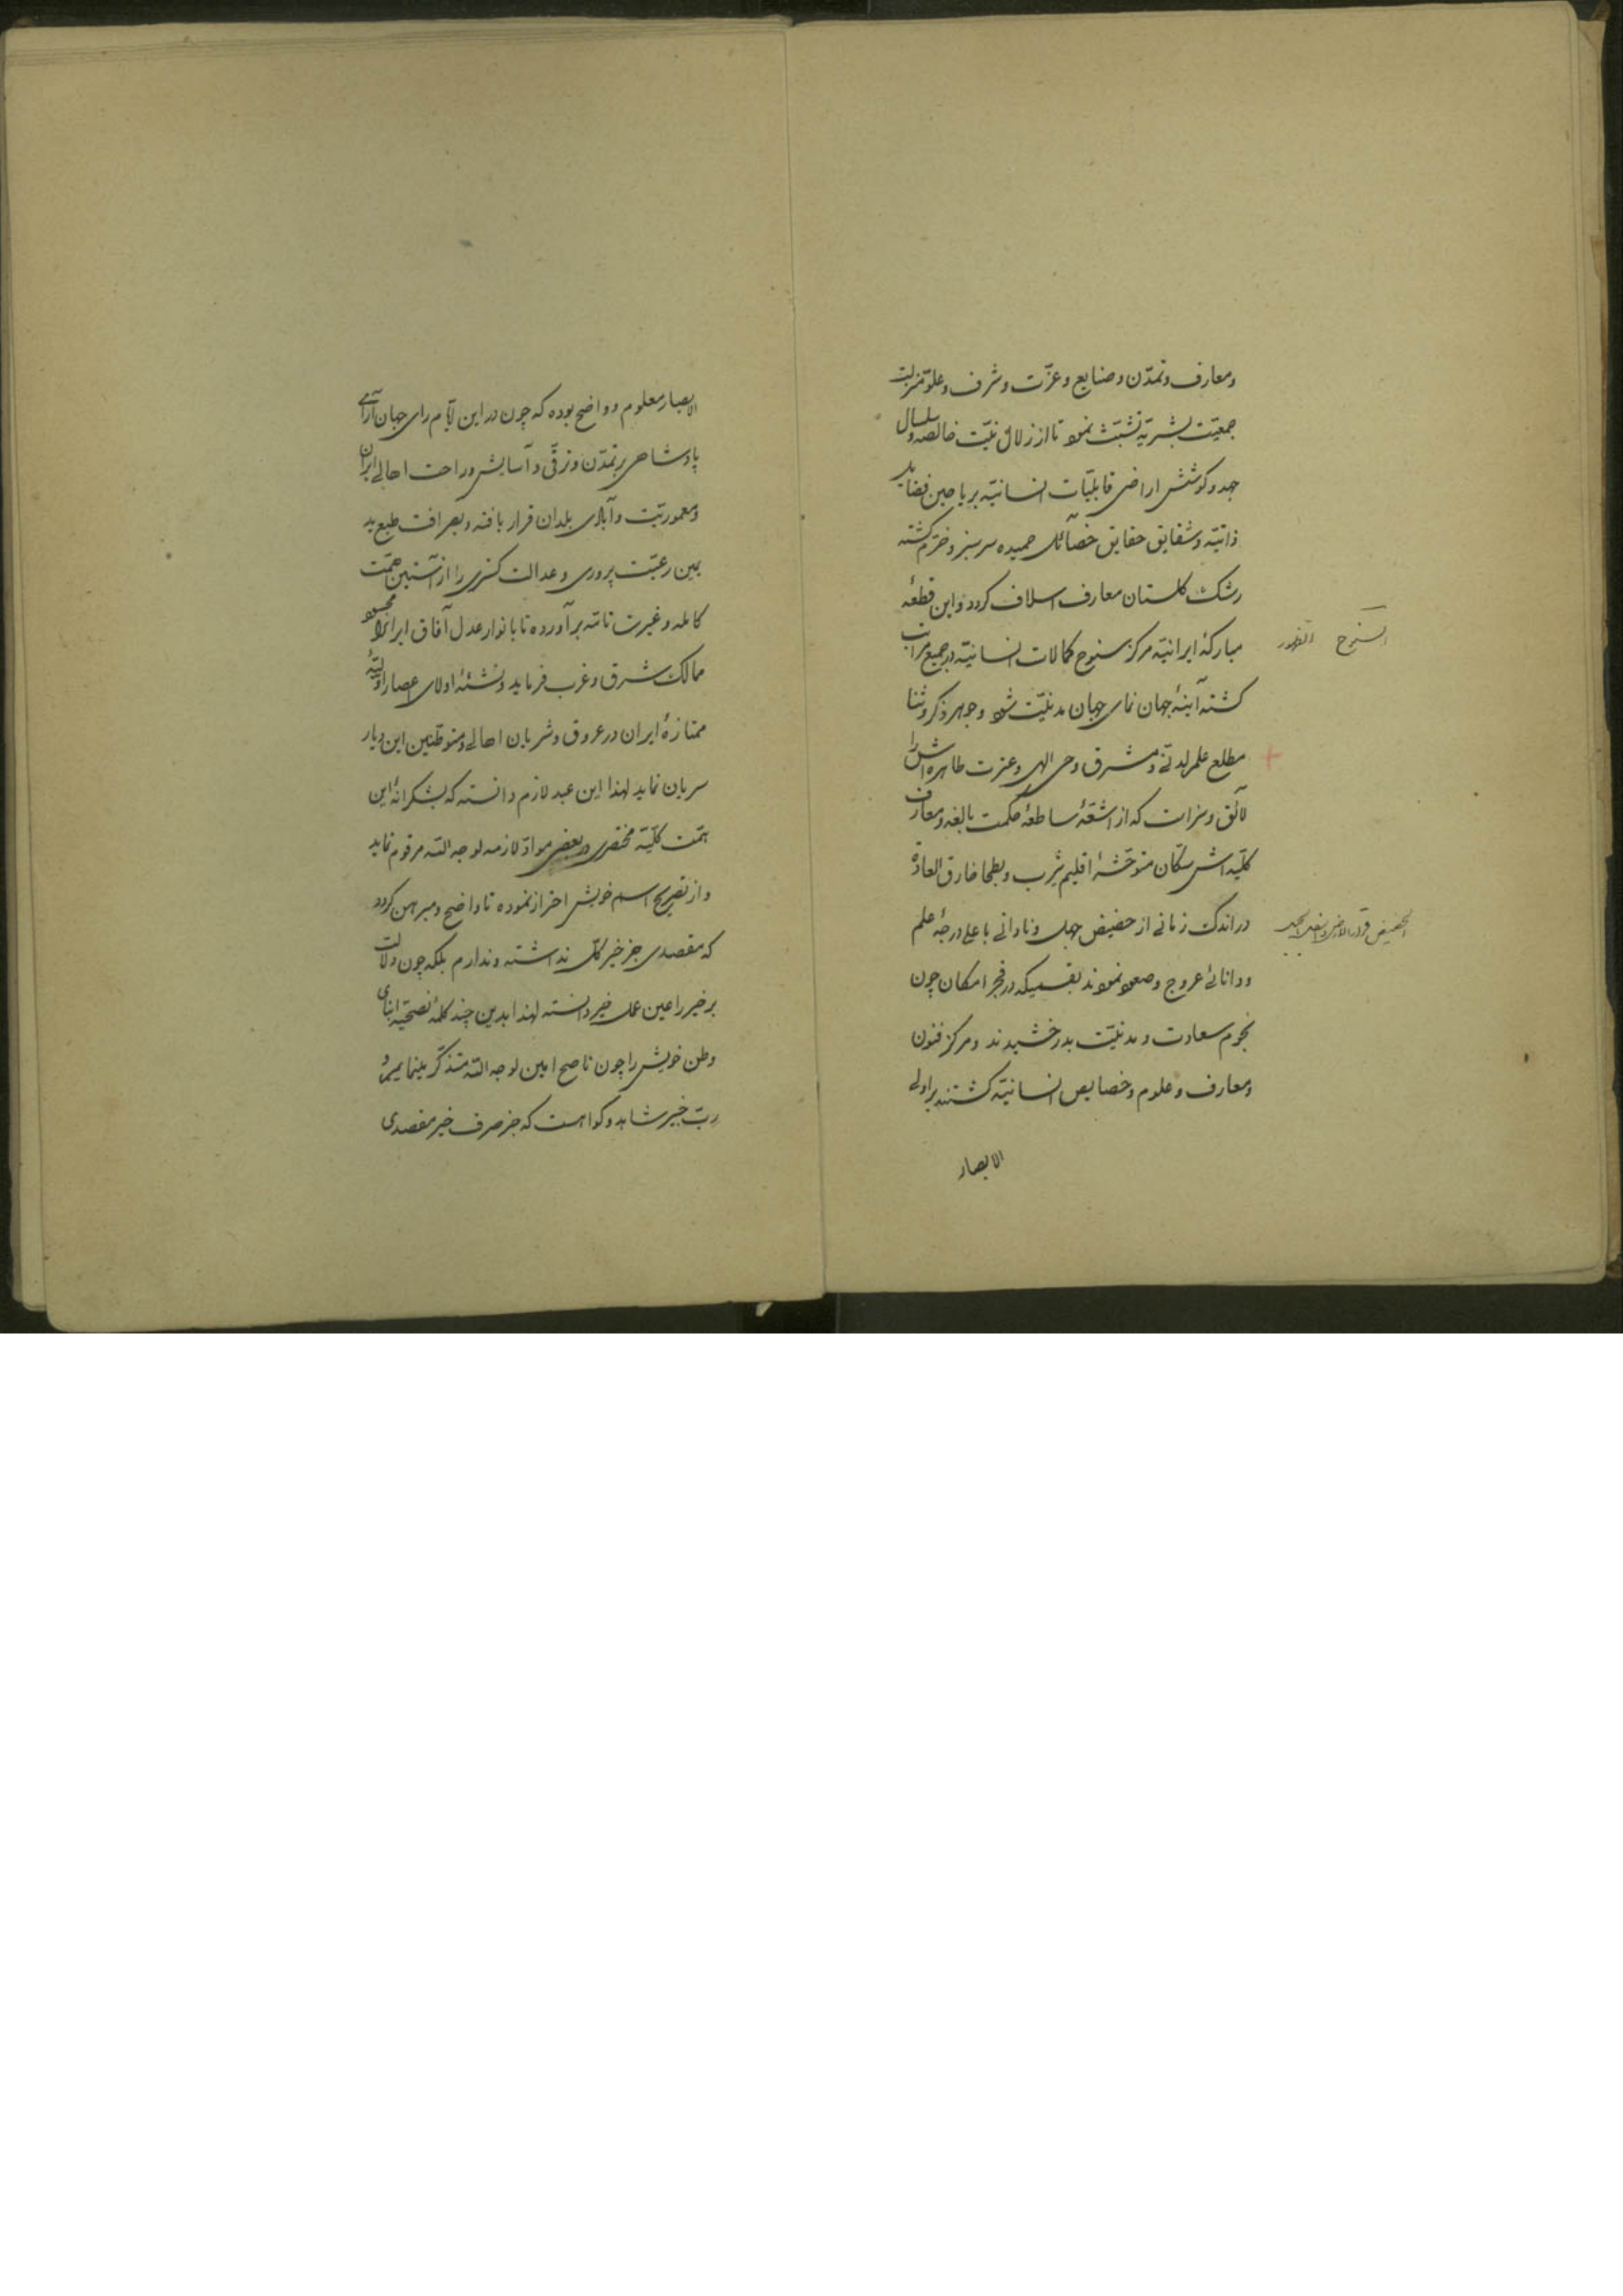 ومعارف وتمدّن وصنایع وعزّت وشرف وعلوّ منزلت
جمعیّت بشریّه تشبّث نموده تا از زلال نیّت خالصه وسلسال
جهد وکوشش اراضی قابلیّات انسانیّه بریاحین فضایل
ذاتیّه وشقایق حقایق خصائل حمیده سرسبز وخرّم کشته
رشک کلستان معارف اسلاف کردد واین قطعۀ
مبارکۀ ایرانیّه مرکز سنوح کمالات انسانیّه در جمیع مراتب
السنوح الظهور
کشته آینۀ جهان نمای جهان مدنیّت شود وجوهر ذکر وثنا
مطلع علم لدنّی ومشرق وحی الهی وعترت طاهره اش را
لائق وسزاست که از اشعّۀ ساطعۀ حکمت بالغه ومعارف
کلّیه اش سکّان متوحّشۀ اقلیم یثرب وبطحا خارق العاده
در اندک زمانی از حضیض جهل ونادانی باعلی درجۀ علم
الحضیض قرار الارض واسفل الجبل
ودانائی عروج وصعود نمودند بقسمیکه در فجر امکان چون
نجوم سعادت ومدنیّت بدرخشیدند ومرکز فنون
ومعارف وعلوم وخصایص انسانیّه کشتند بر اولی
الابصار
الابصار معلوم وواضح بوده که چون در این ایّام رای جهان آرای
پادشاهی بر تمدّن وترقّی وآسایش وراحت اهالی ایران
ومعموریّت وآبادی بلدان قرار یافته وبصرافت طبع ید
یمین رعیّت پروری وعدالت کستری را از آستین همّت
کامله وغیرت تامّه برآورده تا بانوار عدل آفاق ایرانرا محسود
ممالک شرق وغرب فرماید ونشئۀ اولای اعصار اوّلیّۀ
ممتازۀ ایران در عروق وشریان اهالی ومتوطّنین این دیار
سریان نماید لهذا این عبد لازم دانسته که بشکرانۀ این
همّت کلّیّه مختصری در بعضی موادّ لازمه لوجه اللّه مرقوم نماید
واز تصریح اسم خویش احتراز نموده تا واضح ومبرهن کردد
که مقصدی جز خیر کلّ نداشته وندارم بلکه چون دلالت
بر خیر را عین عمل خیر دانسته لهذا بدین چند کلمۀ نصحیّه ابنای
وطن خویش را چون ناصح امین لوجه اللّه متذکّر مینمایم و
ربّ خبیر شاهد وکواهست که جز صرف خیر مقصدی